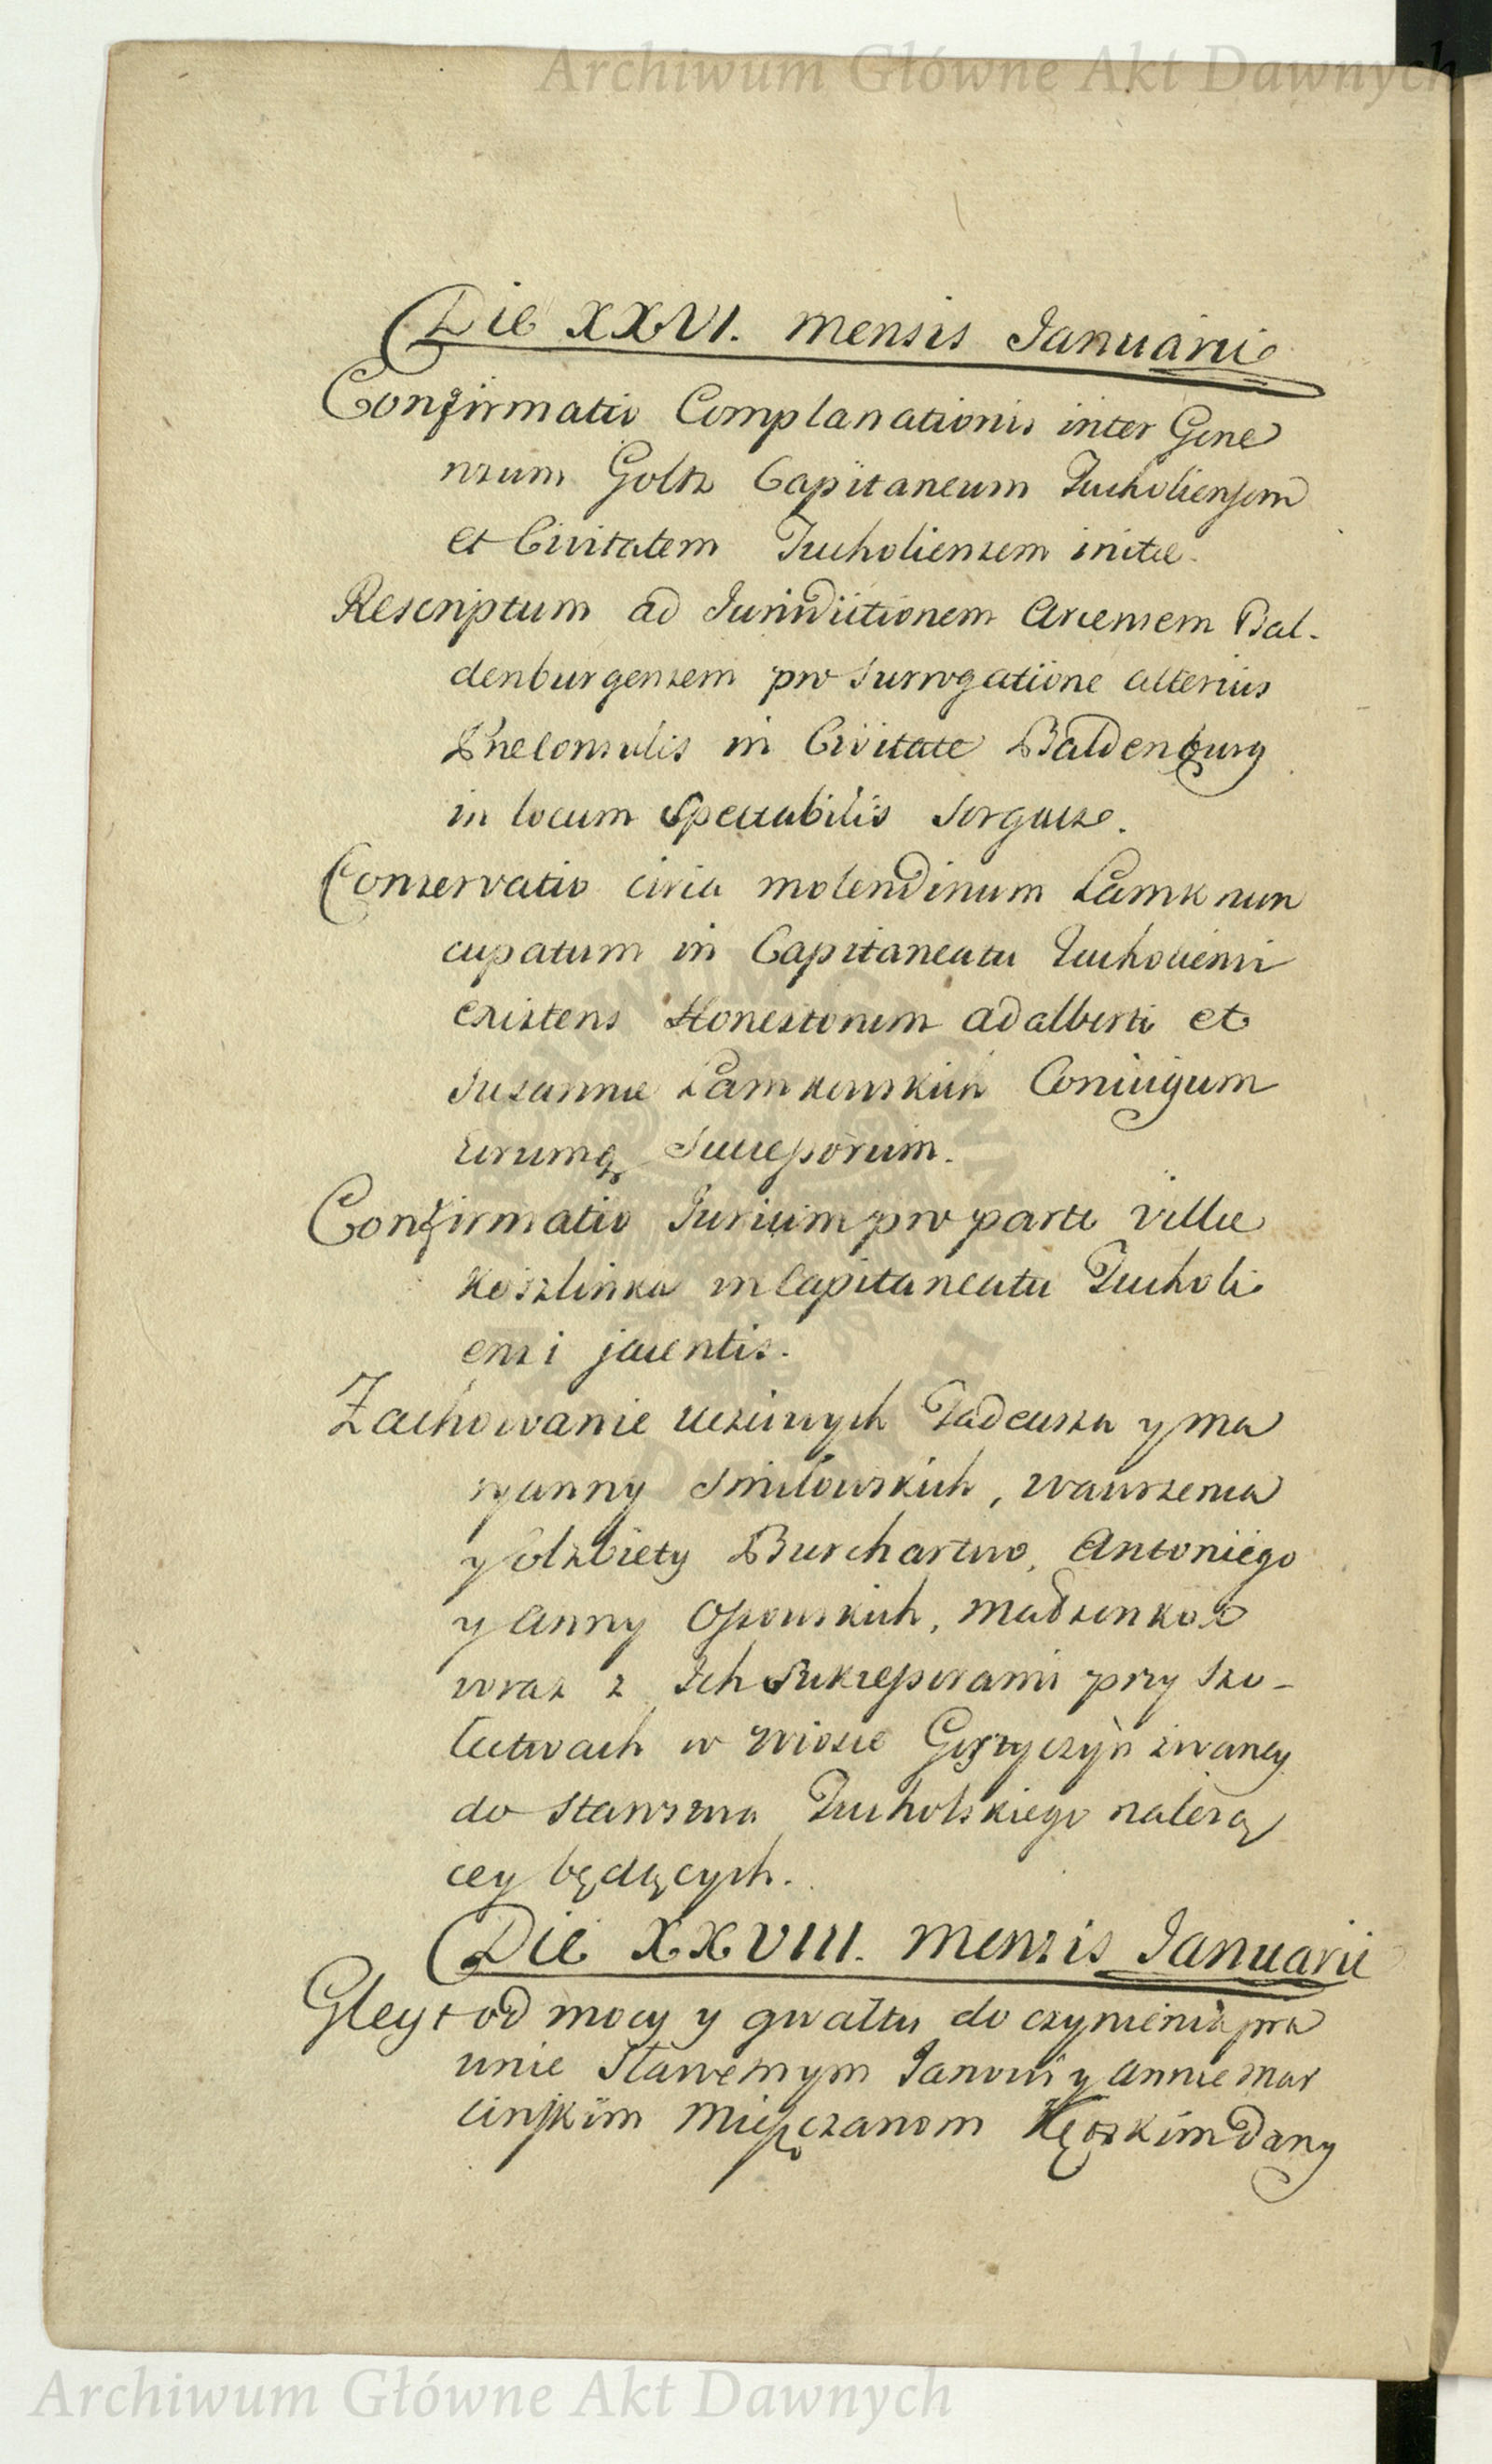 Archiwum Główne Akt Dawnych
Die XXVI. Mensis Januarii
Confirmatio Complanationis inter Gene
rosum Goltz Capitaneum Tucholiensem
et Civitatem Tucholiensem initae.
Rescriptum ad Jurisdictionem Arcensem Bal-
denburgensem pro surrogatione alterius
Proconsulis in Civitate Baldenburg
in locum Spectabilis
Conservatio circa molendinum Lamk nun
cupatum in Capitaneatu Tucholiensi
existens Honestorum Adalberti et
Susannae Lamkowskich Coniugum
eorumq Successorum.
Confirmatio Jurium pro parte villae
Koszlinka in Capitaneatu Tucholi
ensi jacentis.
Zachowanie uczciwych Tadeusza y Ma
ryanny Smilowskich, Wawrzenca
y Elzbiety Burchartow, Antoniego
y Anny Ossowskich, Małzenkow
wraz z Ich Sukcessorami przy Szo-
łectwach w wiosce zwaney
do Starostwa Tucholskiego należą
cey będących.
Die XXVIII. Mensis Januarii
Gleyt od mocy y gwałtu do czynienia pra
wnie Sławetnym Janowi y Annie Mar
cinskim Mieszczanom dany
Archiwum Główne Akt Dawnych